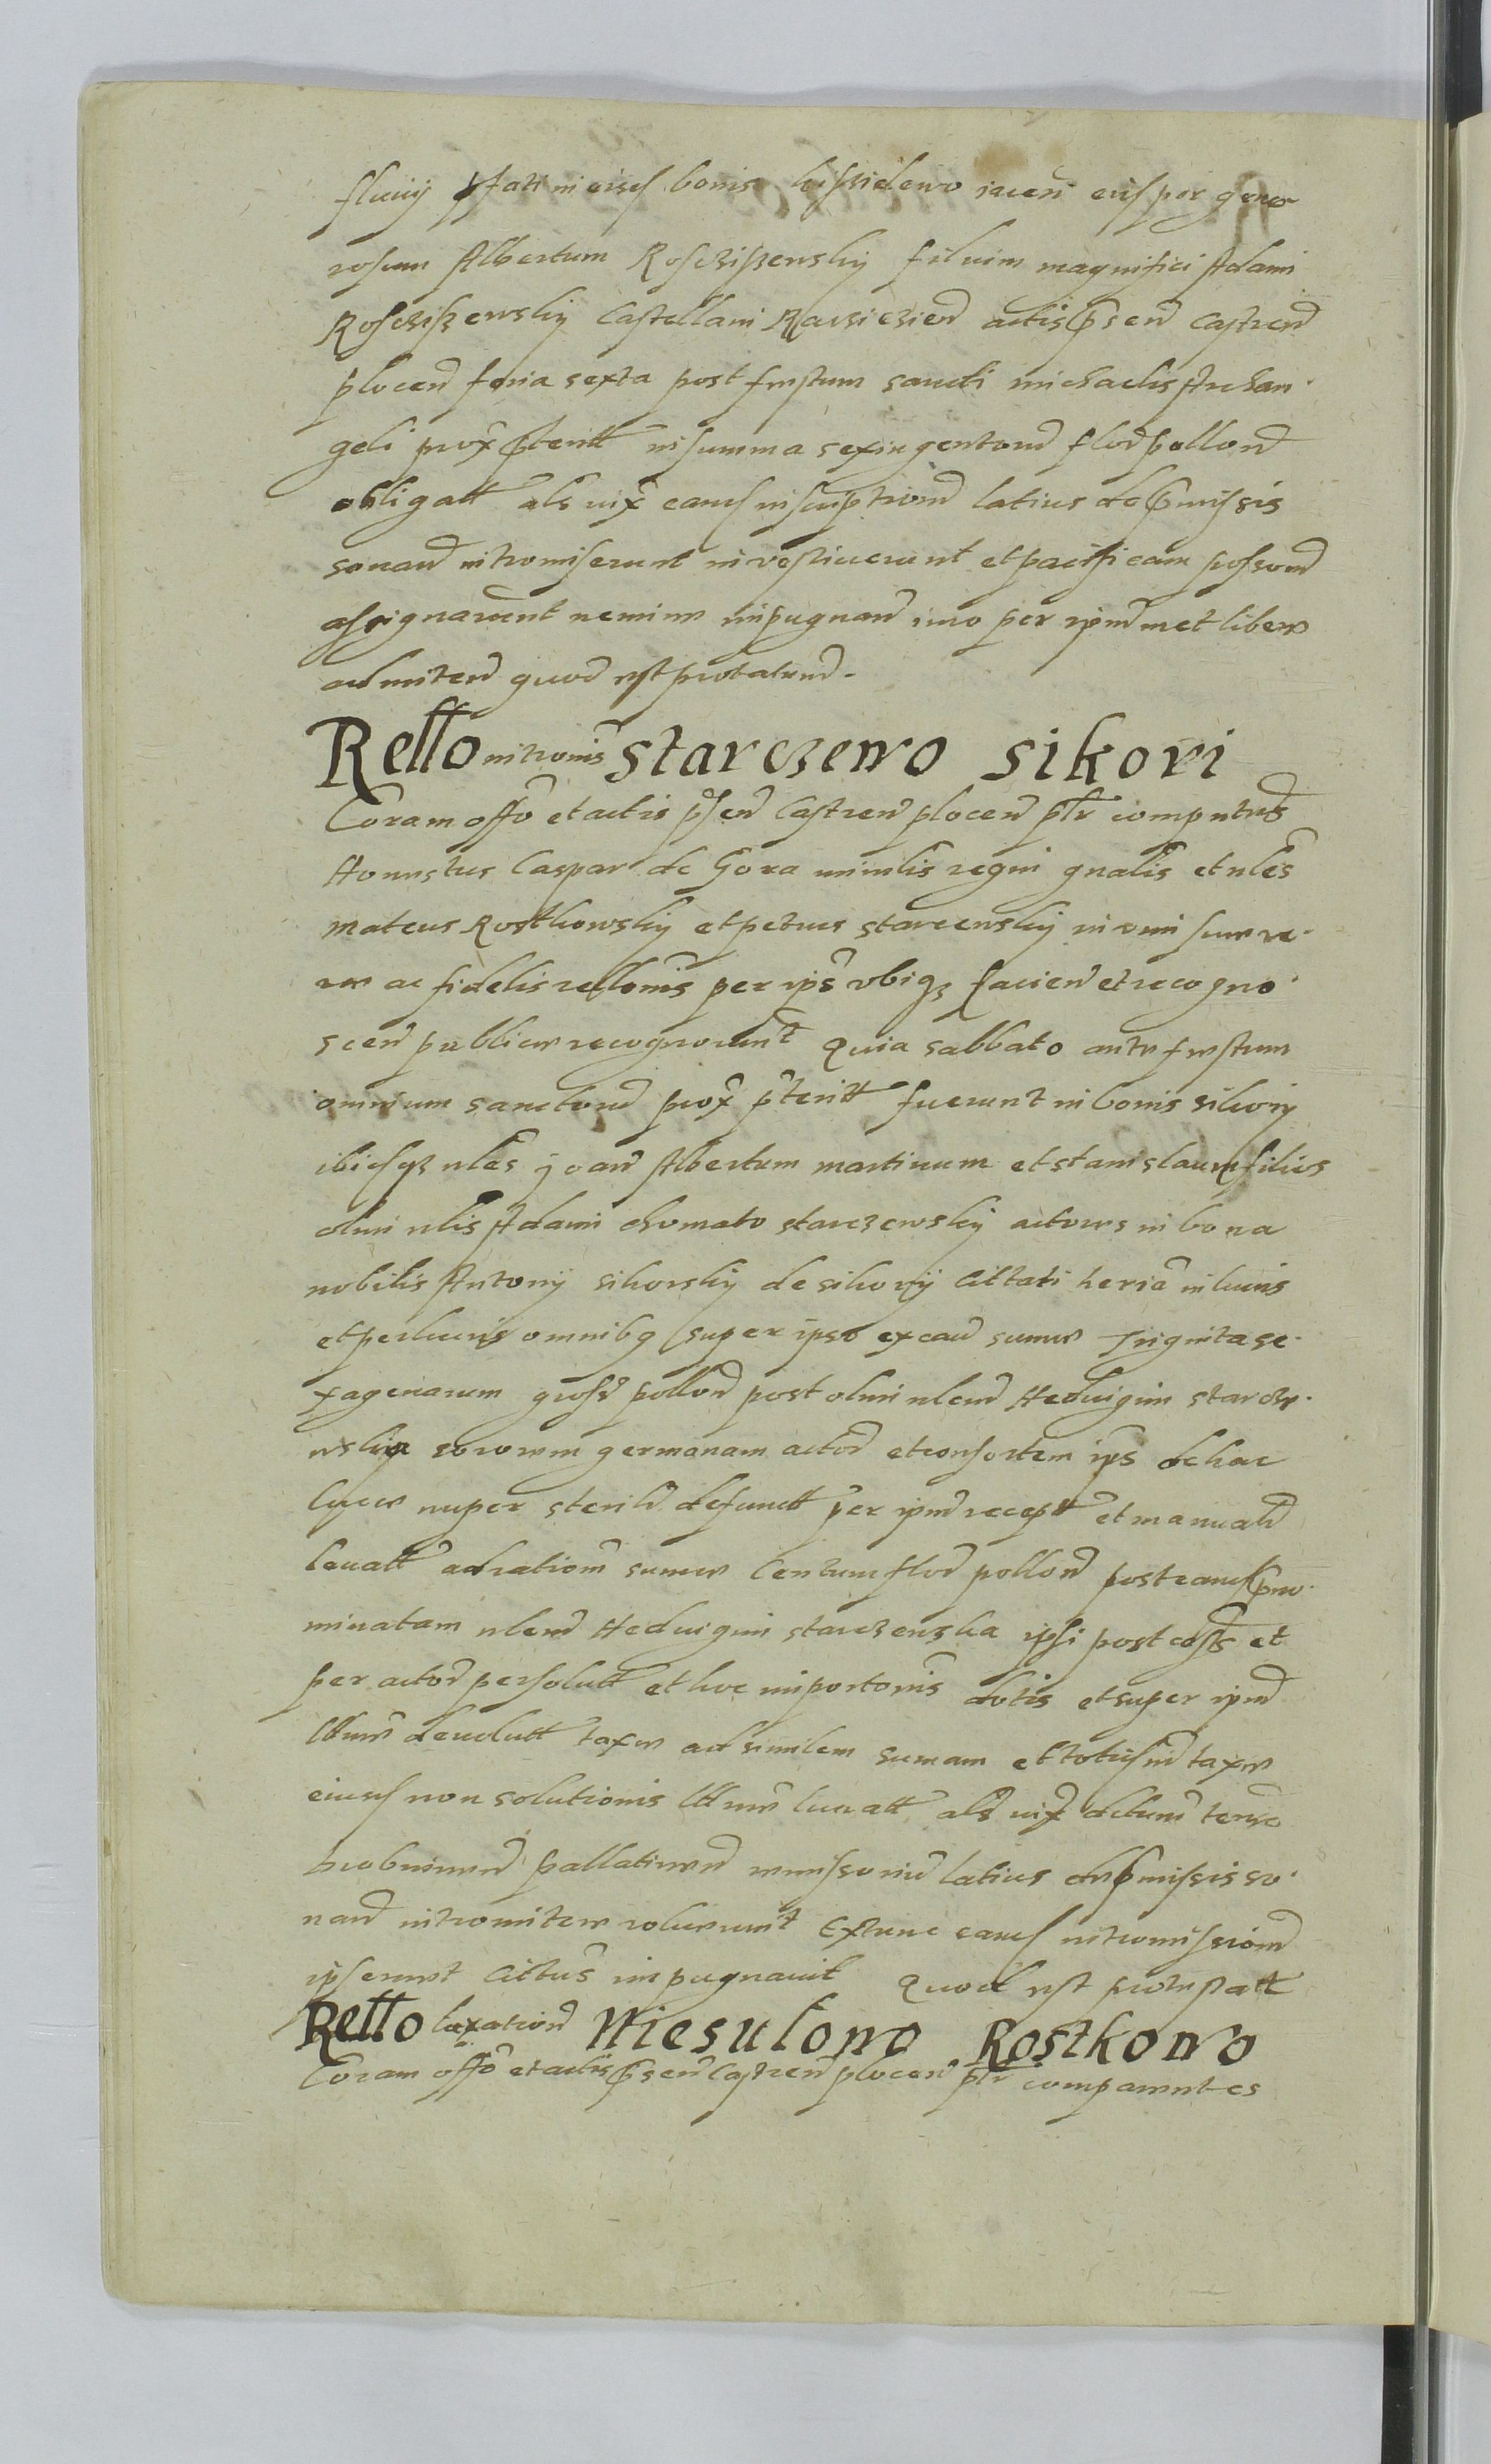 fluvij pfati in eisd bonis iacen eisd per gene
rosum Albertum Roscziszewskij filium magnifici Adami
Roscziszewskij Castellani Raczięzien actis psen Castren
plocen feria sexta post festum sancti michaelis Archan
geli prox pteritt in summa sexingentoru flor pollon
obligatt als iux eand inscriptione latius de pmissis
sonan intromiserunt investiuerunt et pacificam possone
assignarunt nemine inpugnan imo per ipmmet libere
admiten quod est protatum.
Rello intronis starczewo sikori
Coram offo et actis psen Castren plocen pltr comparntes
Honestus Caspar de Gora minlis regni gnalis et nles
mateus Rostkowskij et petrus starcewskij in vim sue ve
re ac fidelis rellonis per ips vbiq facien et recogno
scen publice recognorunt Quia sabbato ante festum
omnium sanctoru prox pteritt fuerunt in bonis sikorij
ibidqz nles joan Albertum martinum et stanislaum filios
olim nlis Adami starczewskij actores in bona
nobilis Antonij sikorskij de sikorij Cittati in lucris
et perlucris omnibq super ipso ex cau sume Triginta se
xagenarum gross pollon post olim nlem Hedvigim starcze
wska sororem germanam actor et consortem ips de hac
luce nuper steril defunctt per ipm receptt et manuali
leuatt ad ratione sume Centum flor pollon post eand pno
minatam nlem Hedvigim starczewska ipsi post et
per actor persolutt et huc importonis dotis et super ipm
devolutt taxe ad similem sumam et taxe
eiusd non solutionis lucratt als iux
pallatinen remissoriu latius de pmissis so
nan intromitere voluerunt Extunc eand intromissione
ipsemet Cittus impugnauit Quod est protestatt
Rello laxation Miesulowo Rostkowo
Coram offo et actis psen Castren plocen pltr comparentes